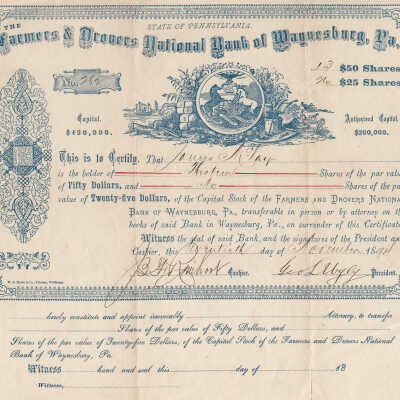 STATE OF PENNSYLVANIA.
THE
Farmers & Drovers National Bank of Waynesburg, Pa.
13 $50 Shares
No $25 Shares
No.
Capital.
$120,000.
Authorized Capital.
$200,000.
This is to Certify, That James
is the holder of Thirteen Shares of the par value
of Fifty Dollars, and No Shares of the par
value of Twenty-five Dollars, of the Capital Stock of the FARMERS AND DROVERS NATIONAL
BANK OF WAYNESBURG, PA., transferable in person or by attorney on the
books of said Bank in Waynesburg, Pa., on surrender of this Certificate
Witness the seal of said Bank, and the signatures of the President and
Cashier, this day of November 189
Cashier. President.
hereby constitute and appoint irrevocably Attorney, to transfer
Shares of the par value of Fifty Dollars, and
Shares of the par value of Twenty-five Dollars, of the Capital Stock of the Farmers and Drovers National
Bank of Waynesburg, Pa.
Witness hand and seal this day of 18
Witness,